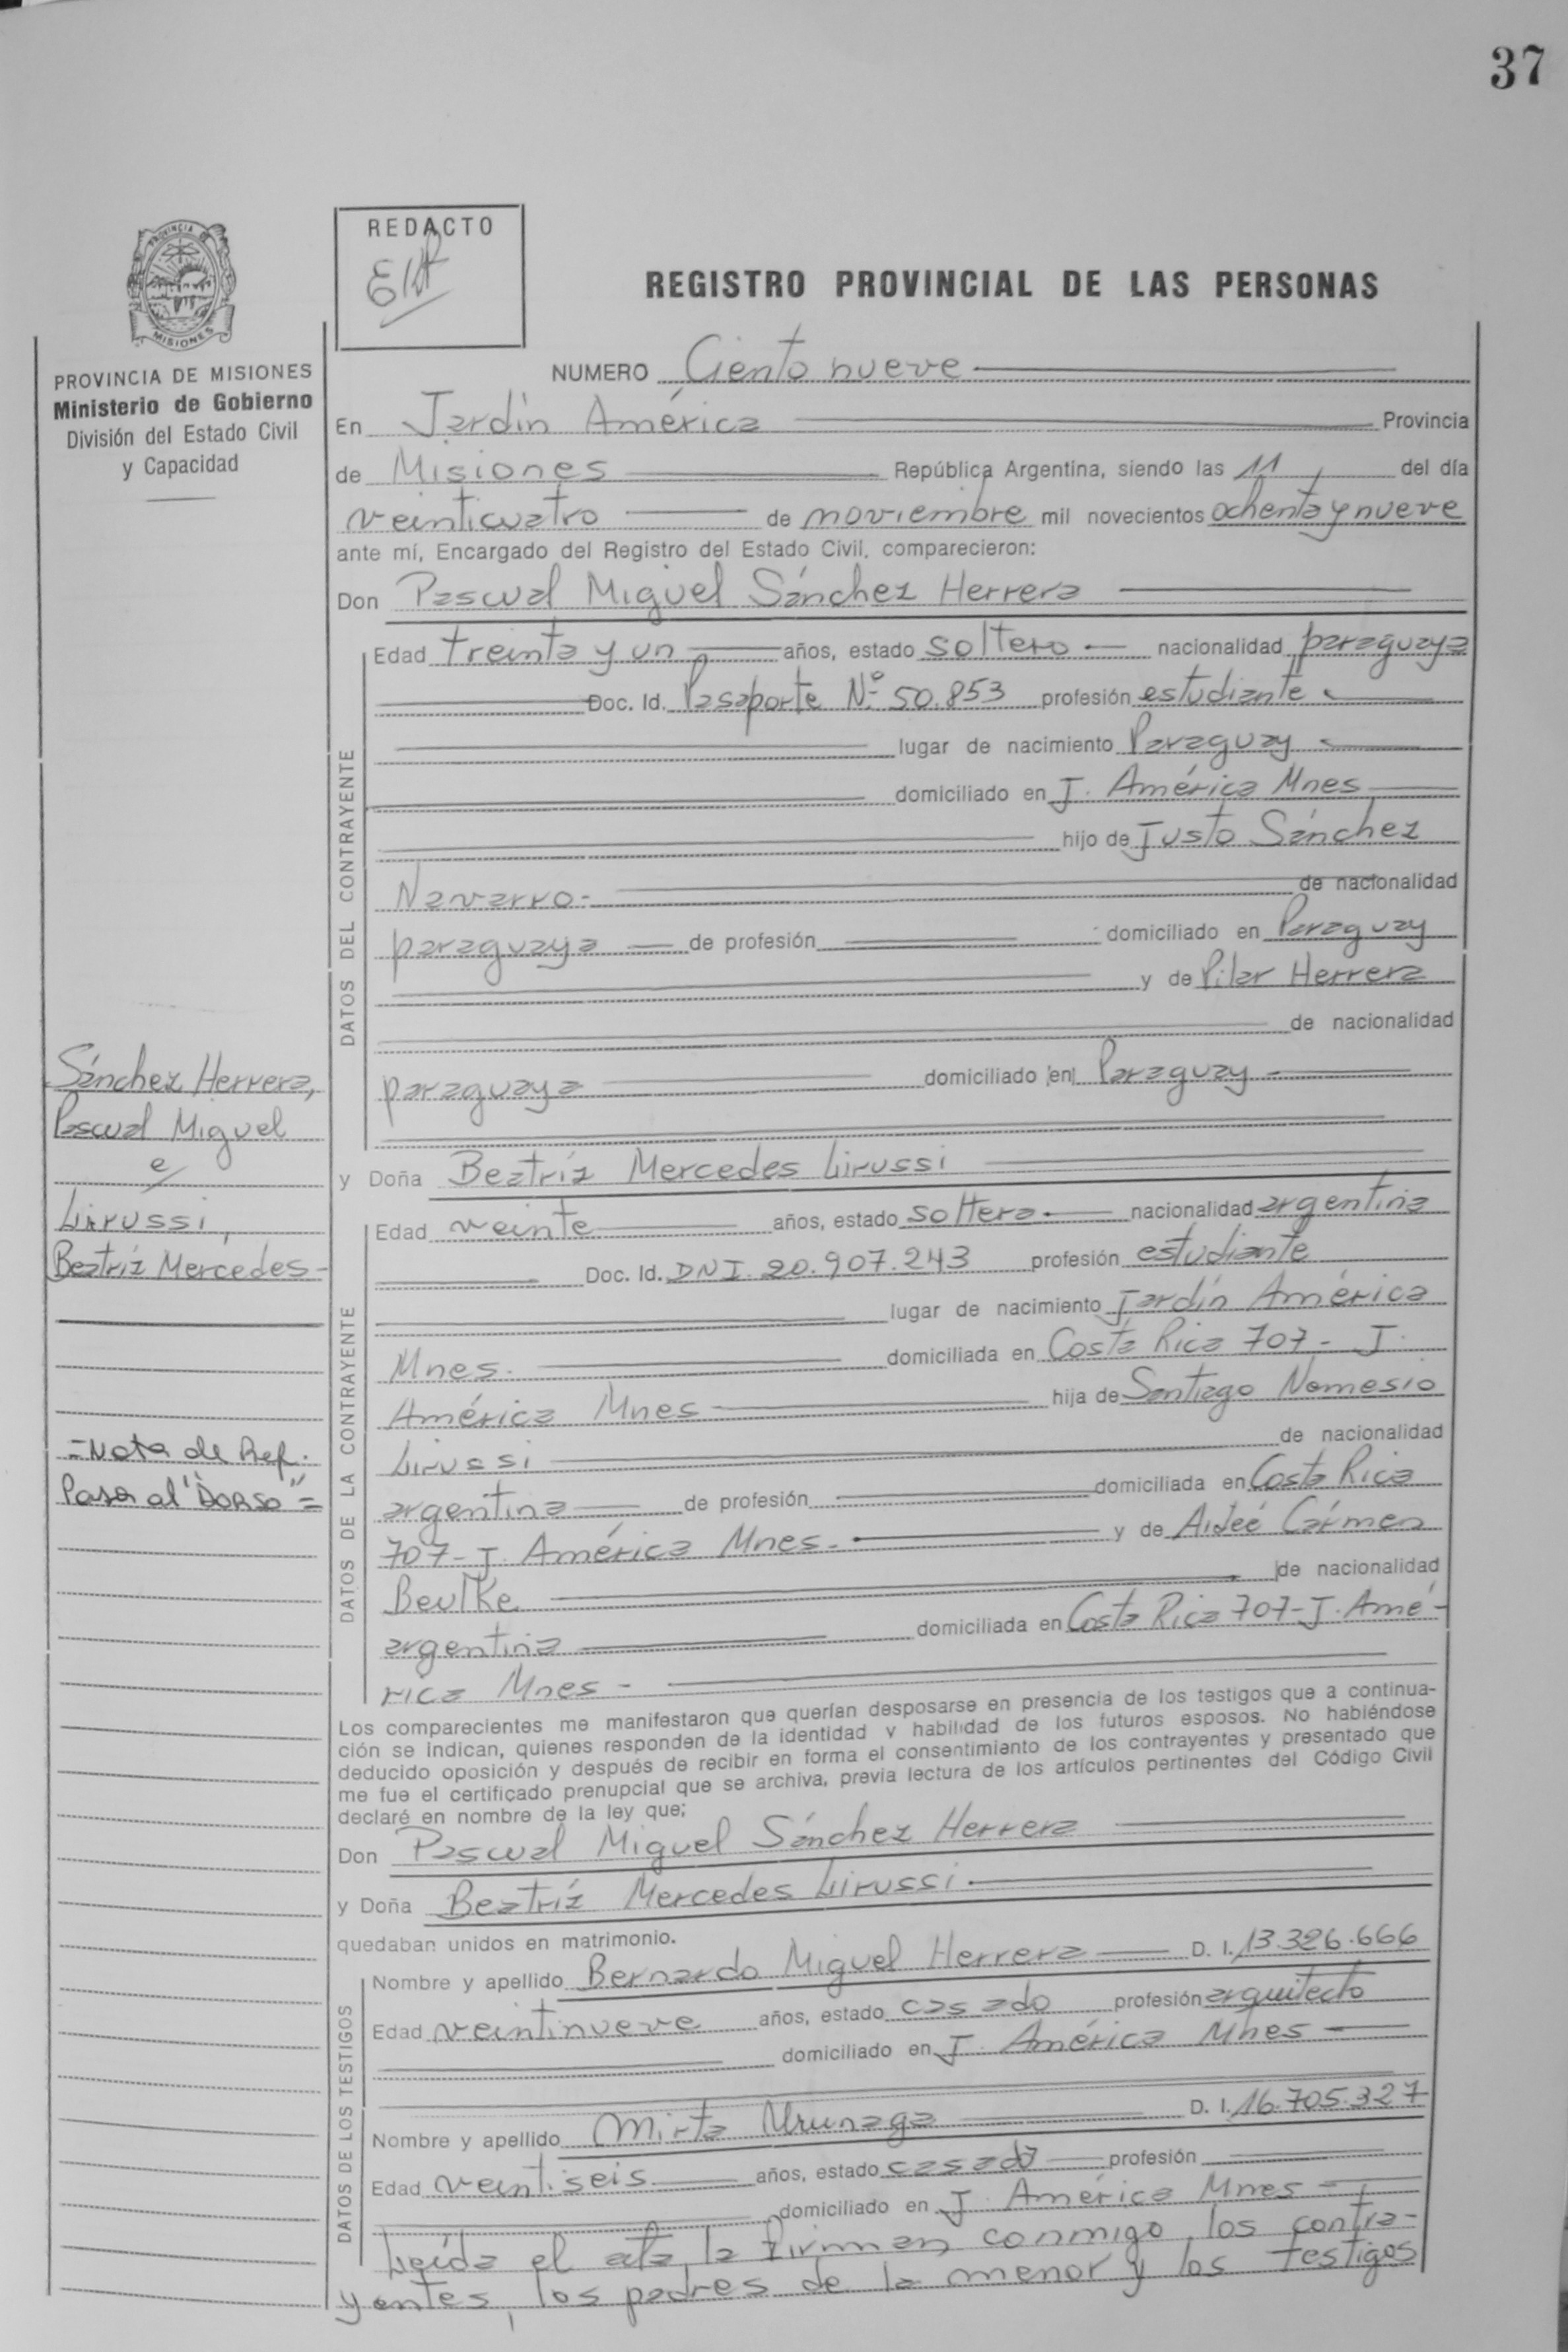 37
PROVINCIA DE
MISIONES
REDACTO
REGISTRO PROVINCIAL DE LAS PERSONAS
PROVINCIA DE MISIONES
Ministerio de Gobierno
División del Estado Civil
y Capacidad
NUMERO Ciento nueve
En Jardín América Provincia
de Misiones República Argentina, siendo las 11 del día
veinticuatro de noviembre mil novecientos ochenta y nueve
ante mí, Encargado del Registro del Estado Civil, comparecieron:
Don Pascual Miguel Sánchez Herrera
DATOS DEL CONTRAYENTE
Edad treinta y un años, estado soltero nacionalidad paraguaya
Doc. Id. Pasaporte Nº 50.853 profesión estudiante
lugar de nacimiento Paraguay
domiciliado en J. América Mnes
hijo de Justo Sánchez
Navarro.- de nacionalidad
paraguaya de profesión domiciliado en Paraguay
y de Pilar Herrera
de nacionalidad
paraguaya domiciliado en Paraguay
Sánchez Herrera,
Pascual Miguel
e/
Lirussi,
Beatríz Mercedes-
=Nota de Ref.
Pasa al "DORSO"=
y Doña Beatríz Mercedes Lirussi
DATOS DE LA CONTRAYENTE
Edad veinte años, estado soltera nacionalidad argentina
Doc. Id. DNI. 20.907.243 profesión estudiante
lugar de nacimiento Jardín América
Mnes. domiciliada en Costa Rica 707- J.
América Mnes hija de Santiago Nemesio
Lirussi de nacionalidad
argentina de profesión domiciliada en Costa Rica
707- J. América Mnes.- y de Aideé Cármen
Beulke de nacionalidad
argentina domiciliada en Costa Rica 707- J. Amé-
rica Mnes-
Los comparecientes me manifestaron que querían desposarse en presencia de los testigos que a continua-
ción se indican, quienes responden de la identidad y habilidad de los futuros esposos. No habiéndose
deducido oposición y después de recibir en forma el consentimiento de los contrayentes y presentado que
me fue el certificado prenupcial que se archiva, previa lectura de los artículos pertinentes del Código Civil
declaré en nombre de la ley que;
Don Pascual Miguel Sánchez Herrera
y Doña Beatríz Mercedes Lirussi.
quedaban unidos en matrimonio.
DATOS DE LOS TESTIGOS
Nombre y apellido Bernardo Miguel Herrera D. I. 13.326.666
Edad veintinueve años, estado casado profesión arquitecto
domiciliado en J. América Mnes
Nombre y apellido Mirta D. I. 16.705.327
Edad veintiseis años, estado casada profesión
domiciliado en J. América Mnes
Leída el acta, la firman conmigo, los contra-
yentes, los padres de la menor y los testigos